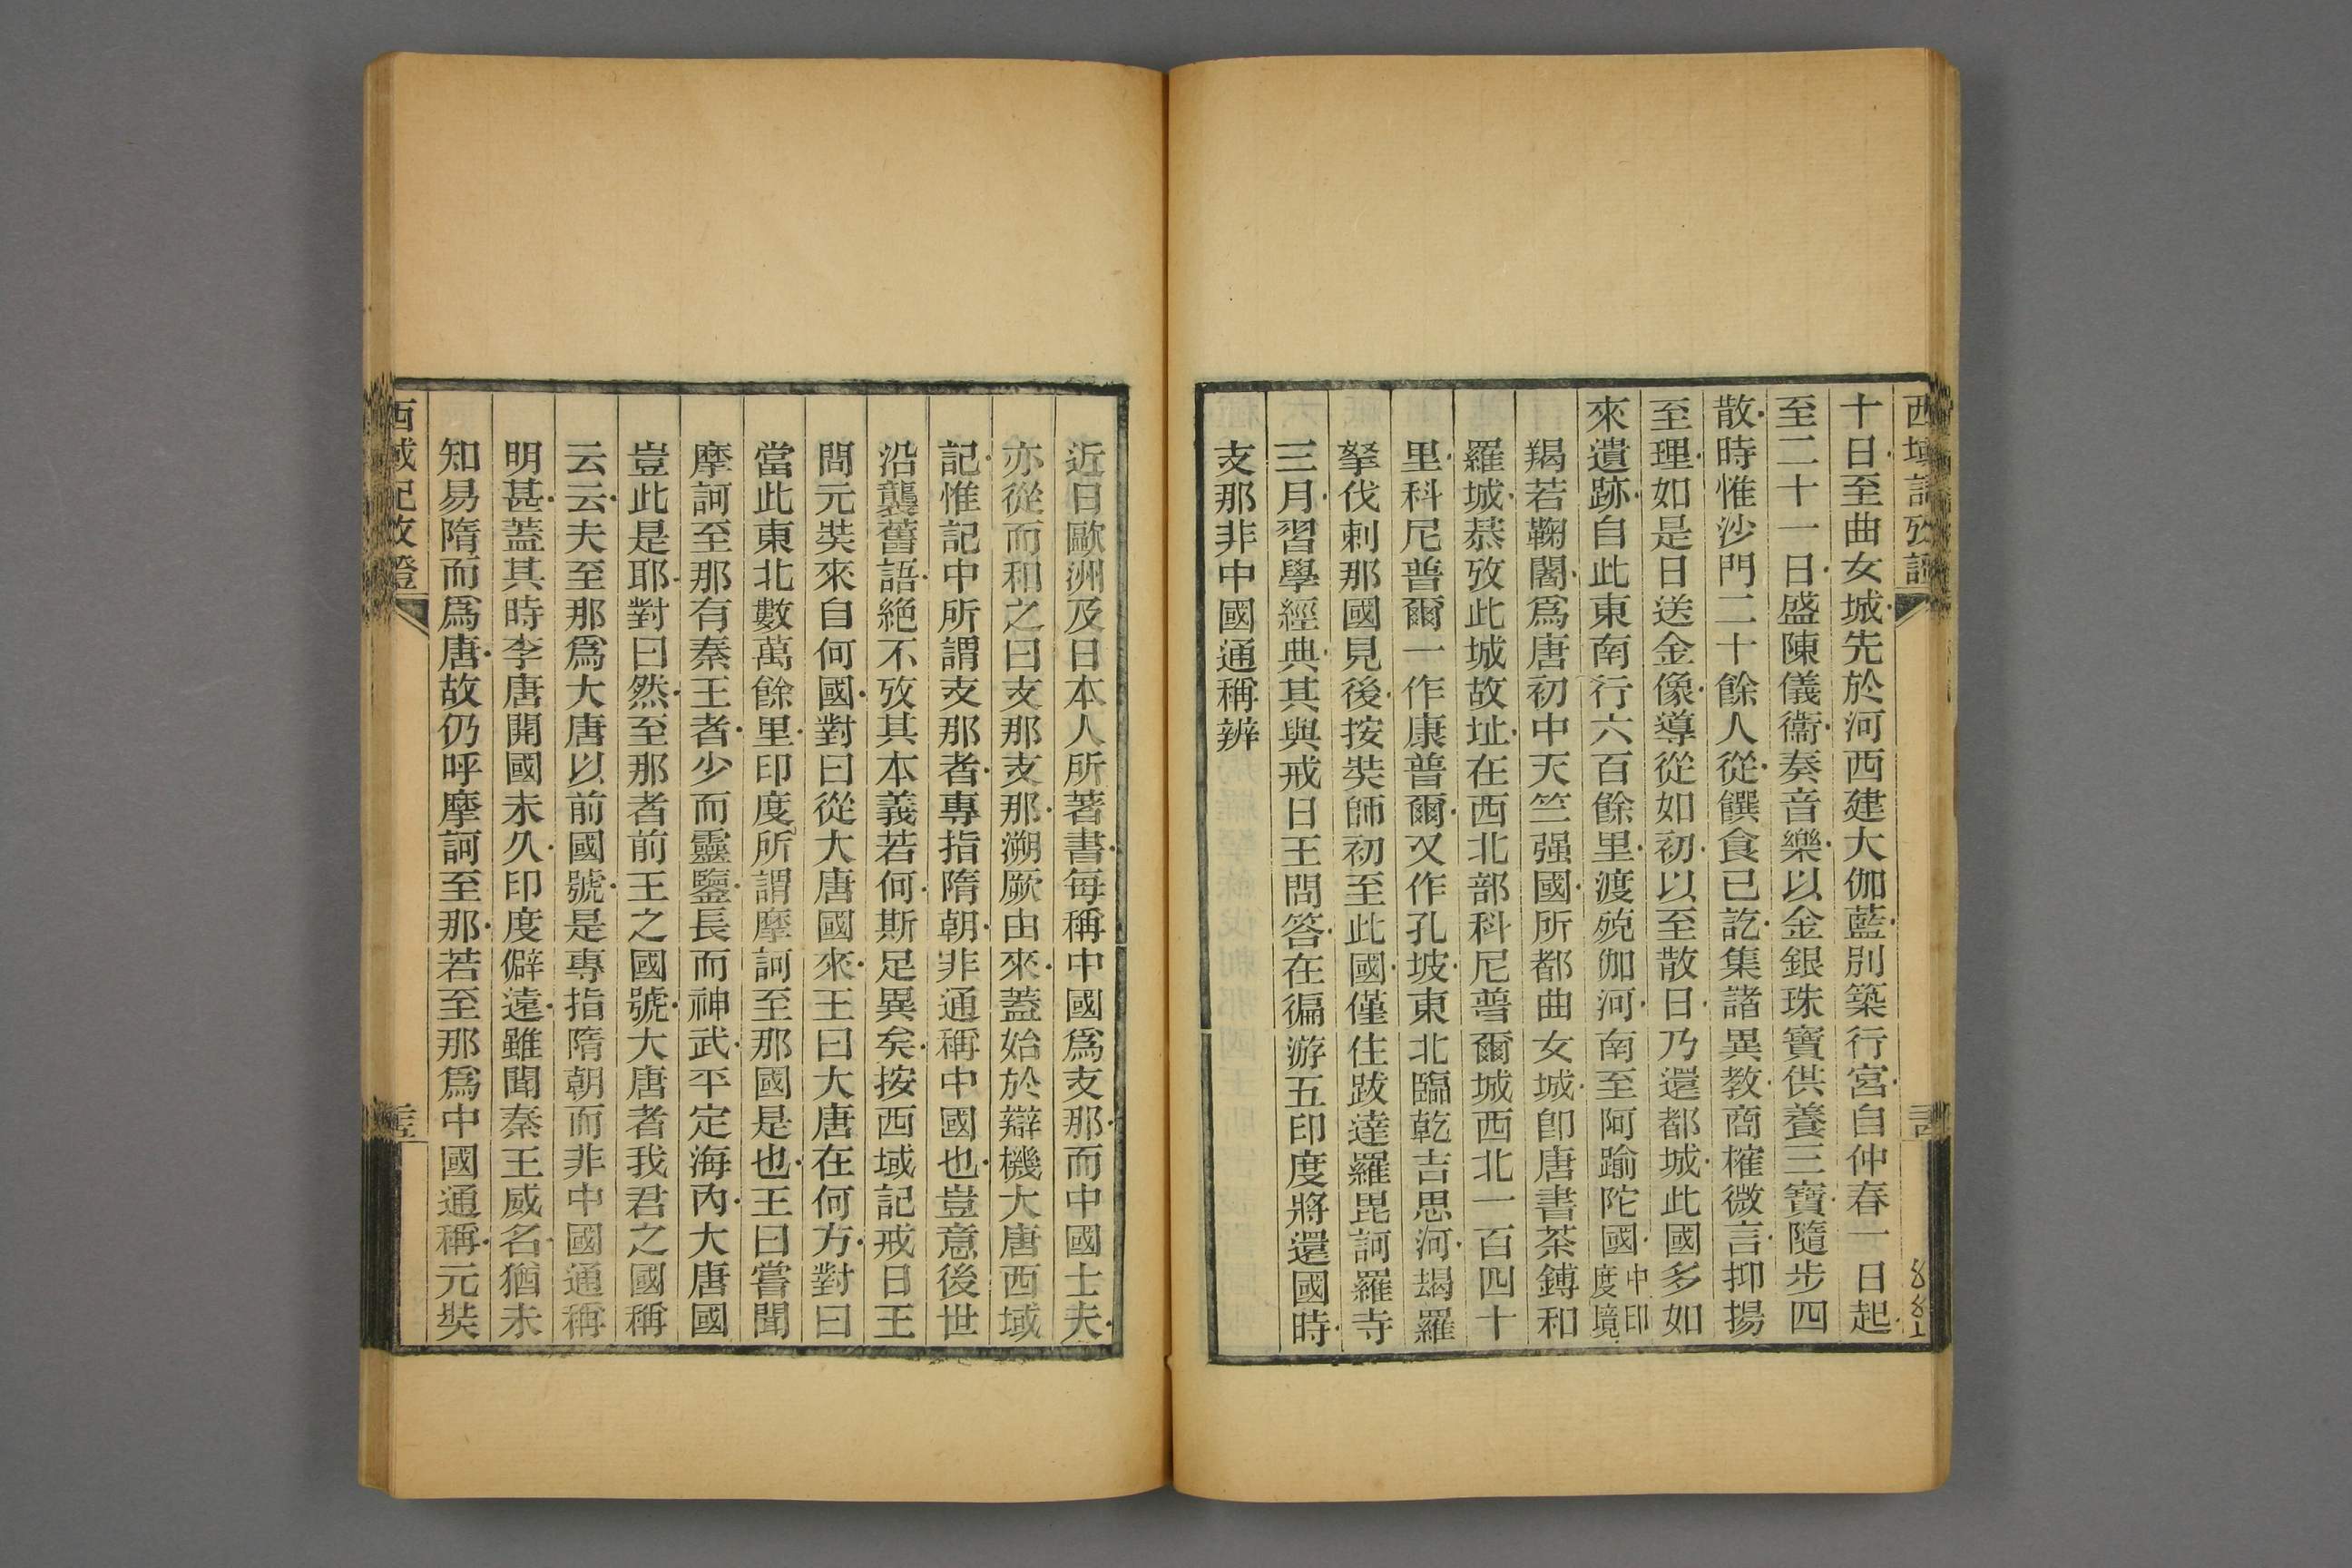 西域記攷證
十日至曲女城先於河西建大伽藍別築行宮自仲春一日起
至二十一日盛陳儀衞奏音樂以金銀珠寶供養三寶隨步四
散時惟沙門二十餘人從饌食已訖集諸異教商榷微言抑揚
至理如是日送金像導從如初以至散日乃還都城此國多如
來遺跡自此東南行六百餘里渡殑伽河南至阿踰陀國中印度境
羯若鞠闍爲唐初中天竺强國所都曲女城卽唐書茶鎛和
羅城恭攷此城故址在西北部科尼普爾城西北一百四十
里科尼普爾一作康普爾又作孔坡東北臨乾吉思河朅羅
拏伐剌那國見後按奘師初至此國僅住跋達羅毘訶羅寺
三月習學經典其與戒日王問答在徧游五印度將還國時
支那非中國通稱辨
近日歐洲及日本人所著書每稱中國爲支那而中國士夫
亦從而和之曰支那支那溯厥由來蓋始於辯機大唐西域
記惟記中所謂支那者專指隋朝非通稱中國也豈意後世
沿襲舊語絕不攷其本義若何斯足異矣按西域記戒日王
問元奘來自何國對曰從大唐國來王曰大唐在何方對曰
當此東北數萬餘里印度所謂摩訶至那國是也王曰嘗聞
摩訶至那有秦王者少而靈鑒長而神武平定海內大唐國
豈此是耶對曰然至那者前王之國號大唐者我君之國稱
云云夫至那爲大唐以前國號是專指隋朝而非中國通稱
明甚蓋其時李唐開國未久印度僻遠雖聞秦王威名猶未
知易隋而爲唐故仍呼摩訶至那若至那爲中國通稱元奘
西域記攷證